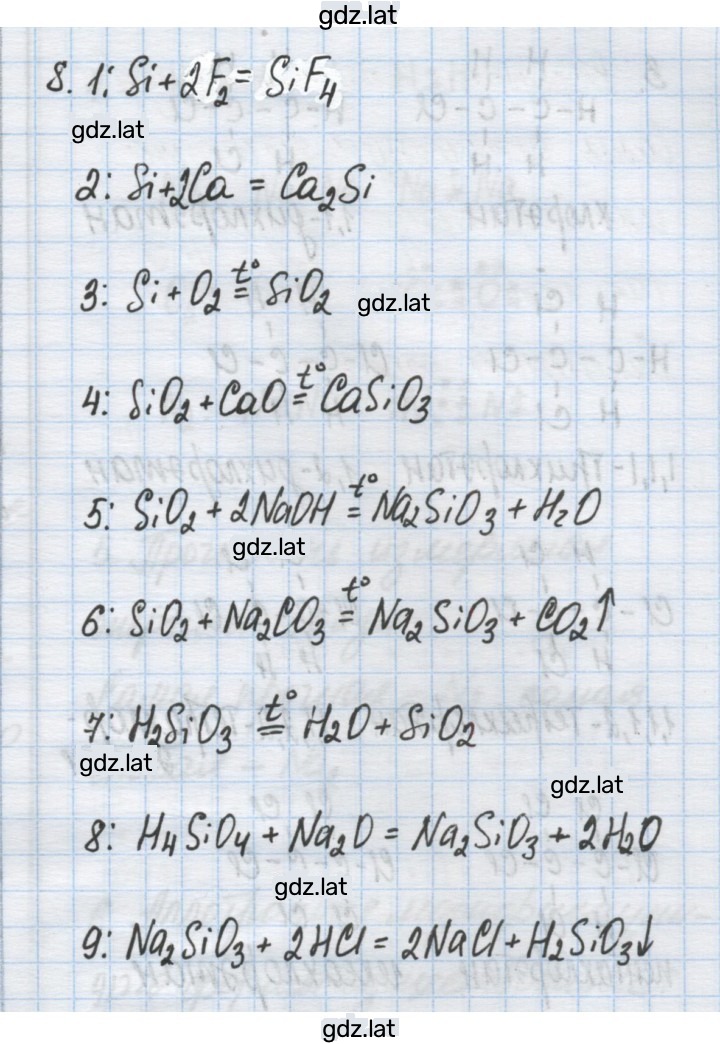 gdz.lat
8. 1: Si + 2F₂ = SiF₄
gdz.lat
2: Si + 2Ca = Ca₂Si
3: Si + O₂ =t° SiO₂ gdz.lat
4: SiO₂ + CaO =t° CaSiO₃
5: SiO₂ + 2NaOH =t° Na₂SiO₃ + H₂O
gdz.lat
6: SiO₂ + Na₂CO₃ =t° Na₂SiO₃ + CO₂↑
7: H₂SiO₃ =t° H₂O + SiO₂
gdz.lat
gdz.lat
8: H₄SiO₄ + Na₂O = Na₂SiO₃ + 2H₂O
gdz.lat
9: Na₂SiO₃ + 2HCl = 2NaCl + H₂SiO₃↓
gdz.lat